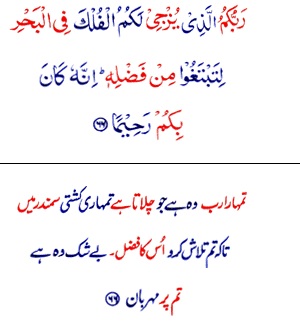 رَبُّكُمُ الَّذِیْ یُزْجِیْ لَكُمُ الْفُلْكَ فِی الْبَحْرِ
لِتَبْتَغُوْا مِنْ فَضْلِهٖ ؕ اِنَّهٗ كَانَ
بِكُمْ رَحِیْمًا ﴿۶۶﴾
تمہارا رب وہ ہے جو چلاتا ہے تمہاری کشتی سمندر میں
تاکہ تم تلاش کرو اُس کا فضل۔ بے شک وہ ہے
تم پر مہربان ﴿۶۶﴾